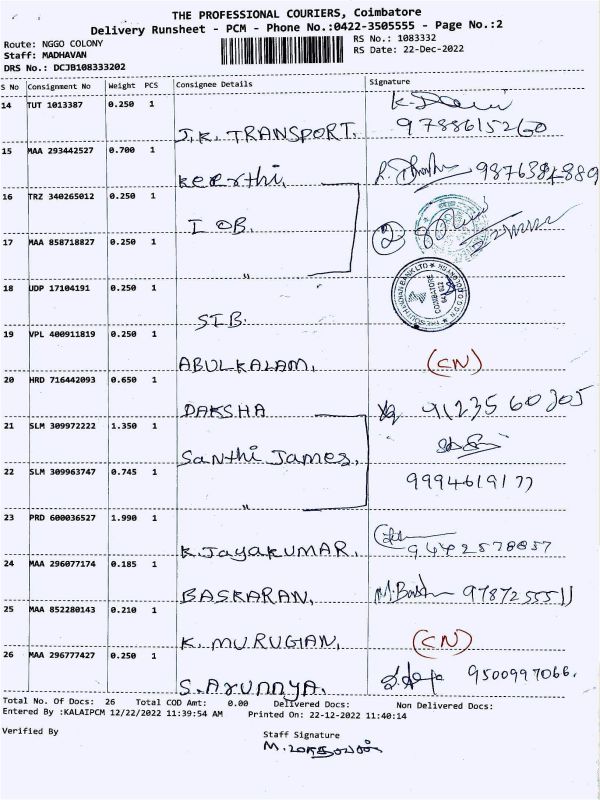 THE PROFESSIONAL COURIERS, Coimbatore
Delivery Runsheet - PCM - Phone No.:0422-3505555 - Page No.:2
Route: NGGO COLONY RS No.: 1083332
Staff: MADHAVAN RS Date: 22-Dec-2022
DRS No.: DCJB108333202
S No Consignment No Weight PCS Consignee Details Signature
14 TUT 1013387 0.250 1
J.K. TRANSPORT. 9788615260
15 MAA 293442527 0.700 1
Keerthi. 9876384889
16 TRZ 340265012 0.250 1
IOB. 2
17 MAA 858718827 0.250 1
"
18 UDP 17104191 0.250 1
SIB.
19 VPL 400911819 0.250 1
ABULKALAM. (CN)
20 HRD 716442093 0.650 1
DAKSHA 9123560205
21 SLM 309972222 1.350 1
Santhi James.
22 SLM 309963747 0.745 1
" 9994619177
23 PRD 600036527 1.990 1
K. Jayakumar. 9442578857
24 MAA 296077174 0.185 1
BASKARAN. M. Baskar 9787255511
25 MAA 852280143 0.210 1
K. MURUGIAN. (CN)
26 MAA 296777427 0.250 1
S. Arunnya. 9500997066.
Total No. Of Docs: 26 Total COD Amt: 0.00 Delivered Docs: Non Delivered Docs:
Entered By :KALAIPCM 12/22/2022 11:39:54 AM Printed On: 22-12-2022 11:40:14
Verified By Staff Signature